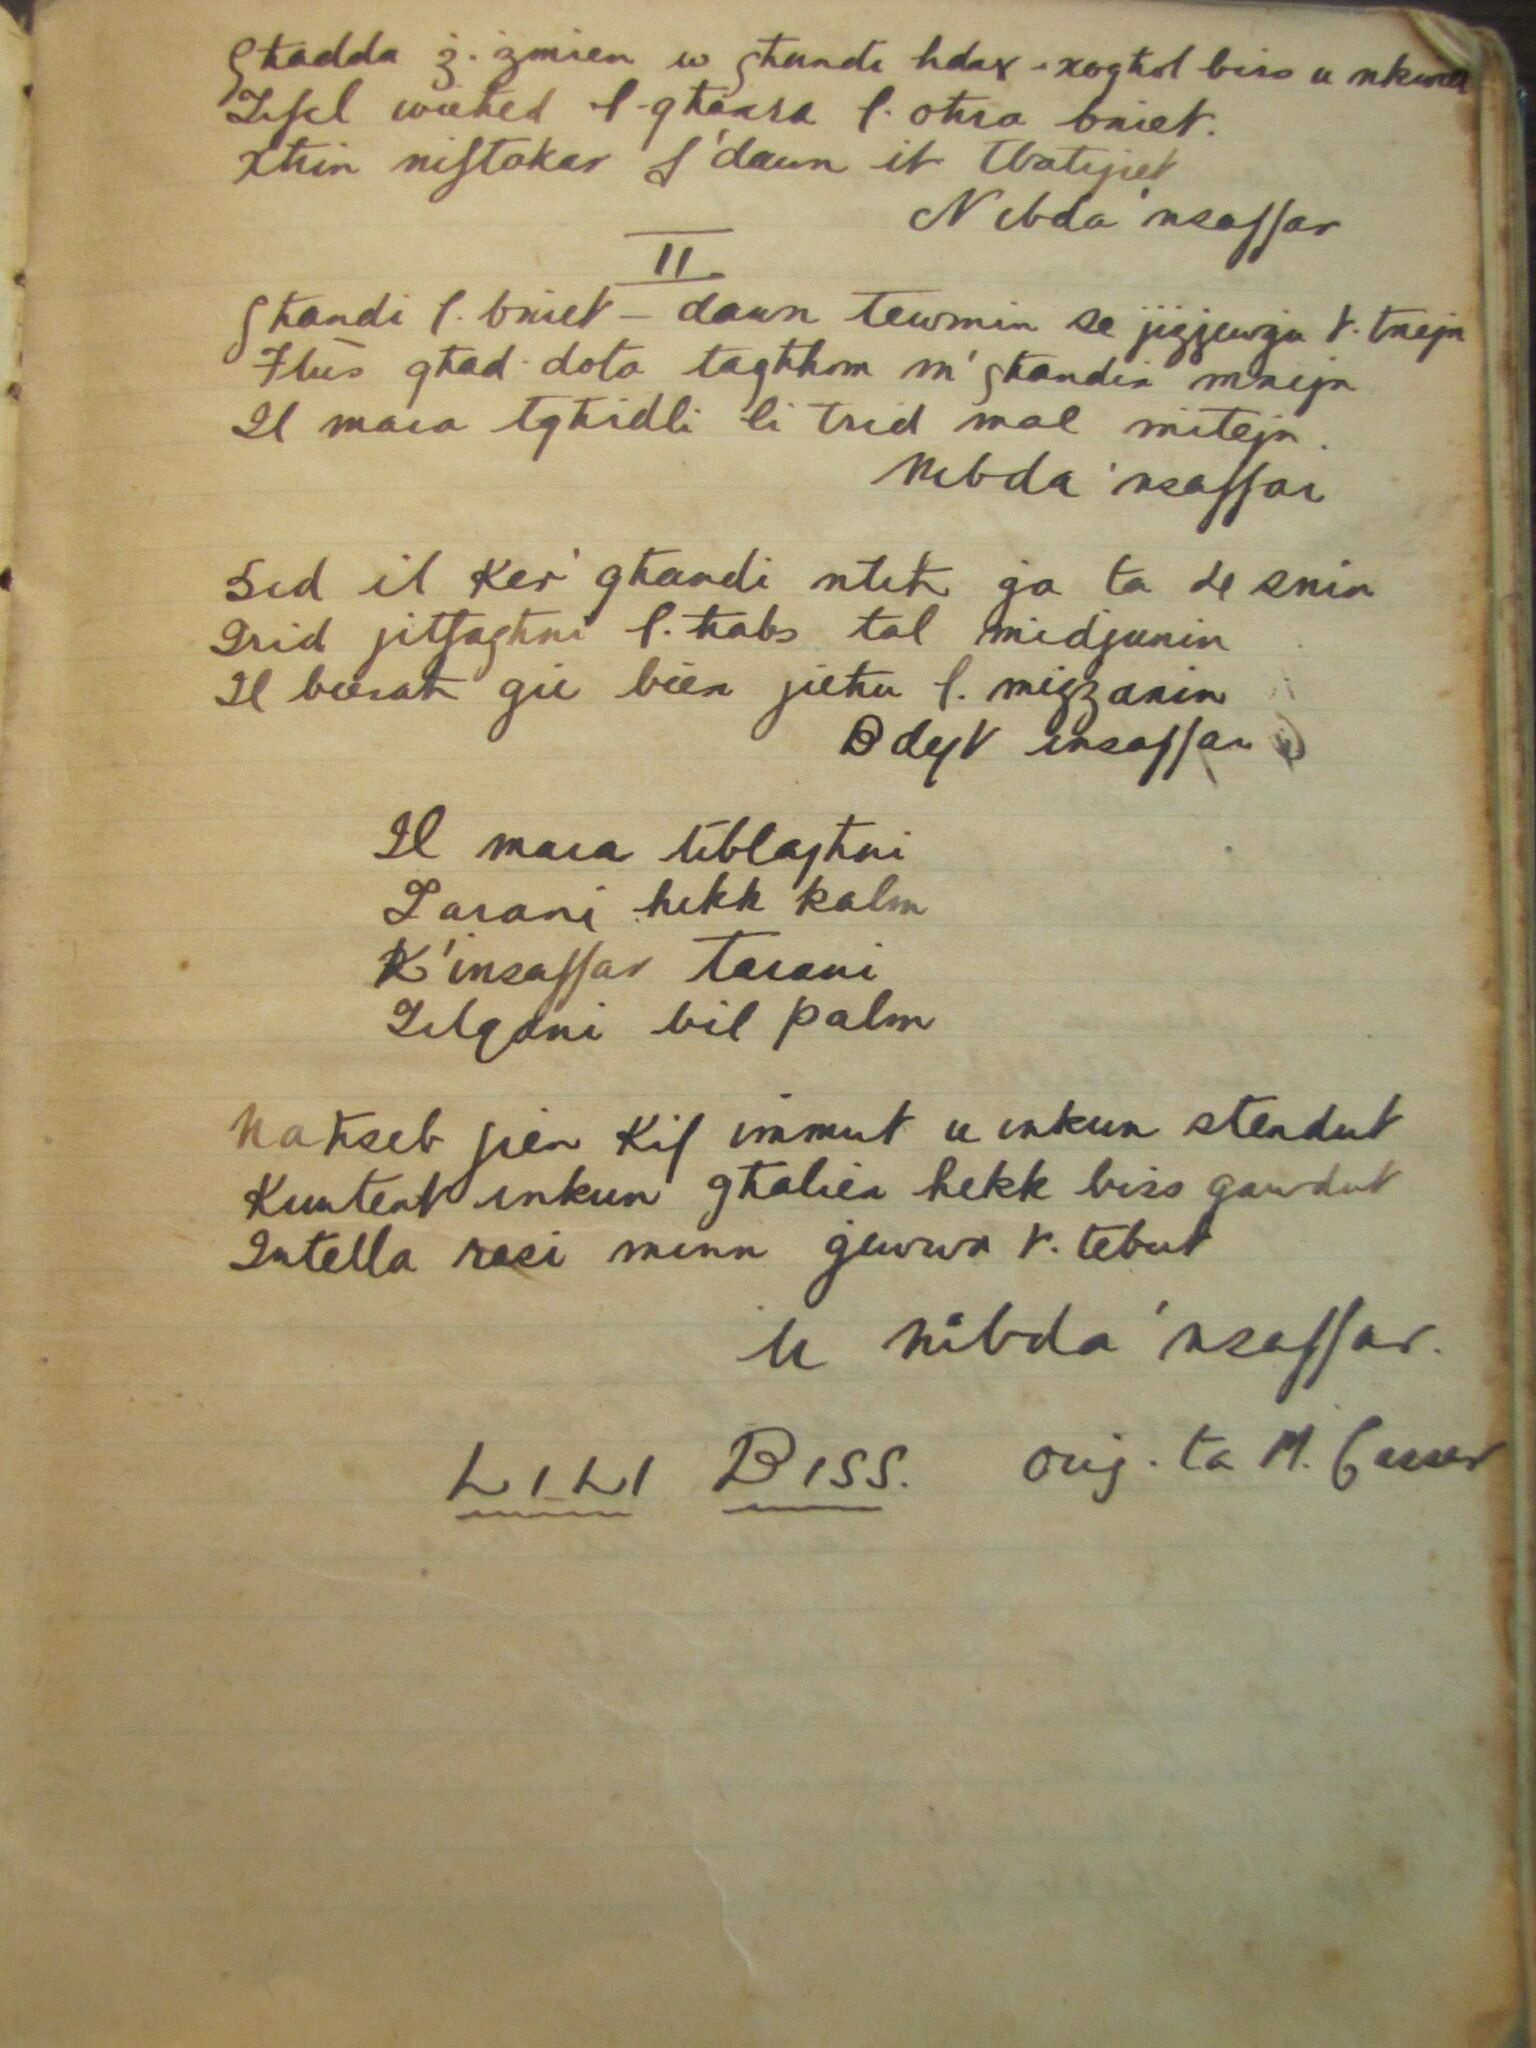 Għadda ż. żmien w għandi hdax - xogħol biss u nkwiet
Tifel wieħed l-għaxra l. oħra bniet.
Xħin niftakar f'dawn it tbatijiet
Nibda 'nsaffar
II
Għandi l. bniet - dawn tewmin se jiżżewġu t. tnejn
Flus għad-dota tagħhom m'għandix mnejn
Il mara tgħidli li trid mal mitejn.
Nibda 'nsaffar
Sid il Ker' għandi ntih ġa ta de snin
Irid jitfagħni l. ħabs tal midjunin
Il bierah ġie biex jieħu l. mizzanin
Bdejt insaffar
Il mara tiblagħni
Tarani hekk kalm
K'insaffar tarani
Tilqani bil palm
Naħseb jien kif immut u inkun stendut
Kuntent inkun għaliex hekk biss gawdut
Intella rasi minn ġewwa t. tebut
U nibda 'nsaffar.
LILI BISS. Oriġ. ta M.